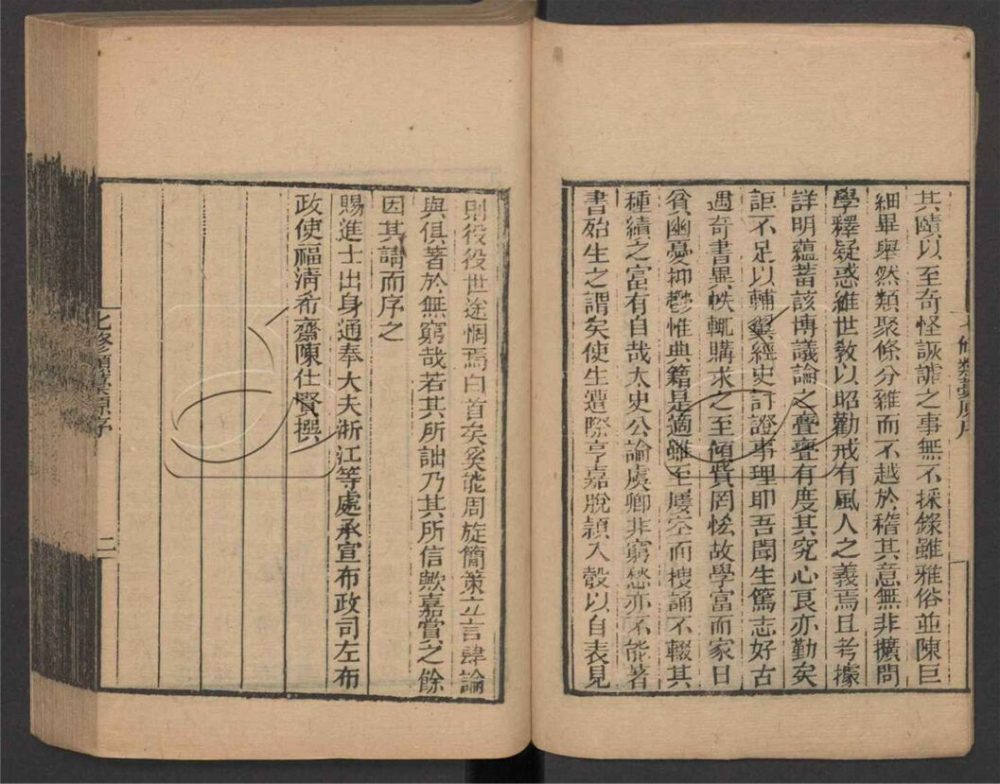 其賾以至奇怪詼謔之事無不採錄雖雅俗並陳巨
細畢舉然類聚條分雜而不越於稽其意無非擴問
學釋疑惑維世敎以昭勸戒有風人之義焉且考據
詳明蘊蓄該博議論之亹亹有度其究心良亦勤矣
詎不足以輔翼經史訂證事理耶吾聞生篤志好古
遇奇書異帙輒購求之至傾貲罔恡故學富而家日
貧幽憂抑鬱惟典籍是適雖至屢空而披誦不輟其
種績之富有自哉太史公論虞卿非窮愁亦不能著
書殆生之謂矣使生遭際亨嘉脫穎入彀以自表見
則役役世途惘焉白首矣奚能周旋簡策立言肆論
與俱著於無窮哉若其所詘乃其所信歟嘉賞之餘
因其請而序之
賜進士出身通奉大夫浙江等處承宣布政司左布
政使福淸希齋陳仕賢撰
七修類藁原序
二